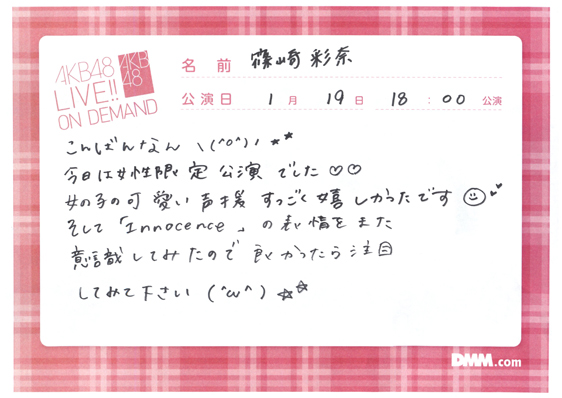 AKB48
LIVE!!
ON DEMAND
AKB
48
名前 篠崎彩奈
公演日 1月 19日 18:00 公演
こんばんなん \(^o^)/ ★★
今日は女性限定公演でした♡♡
女の子の可愛い声援すっごく嬉しかったです☺♥♥
そして「Innocence」の表情をまた
意識してみたので良かったら注目
してみて下さい(^ω^)☆☆
DMM.com